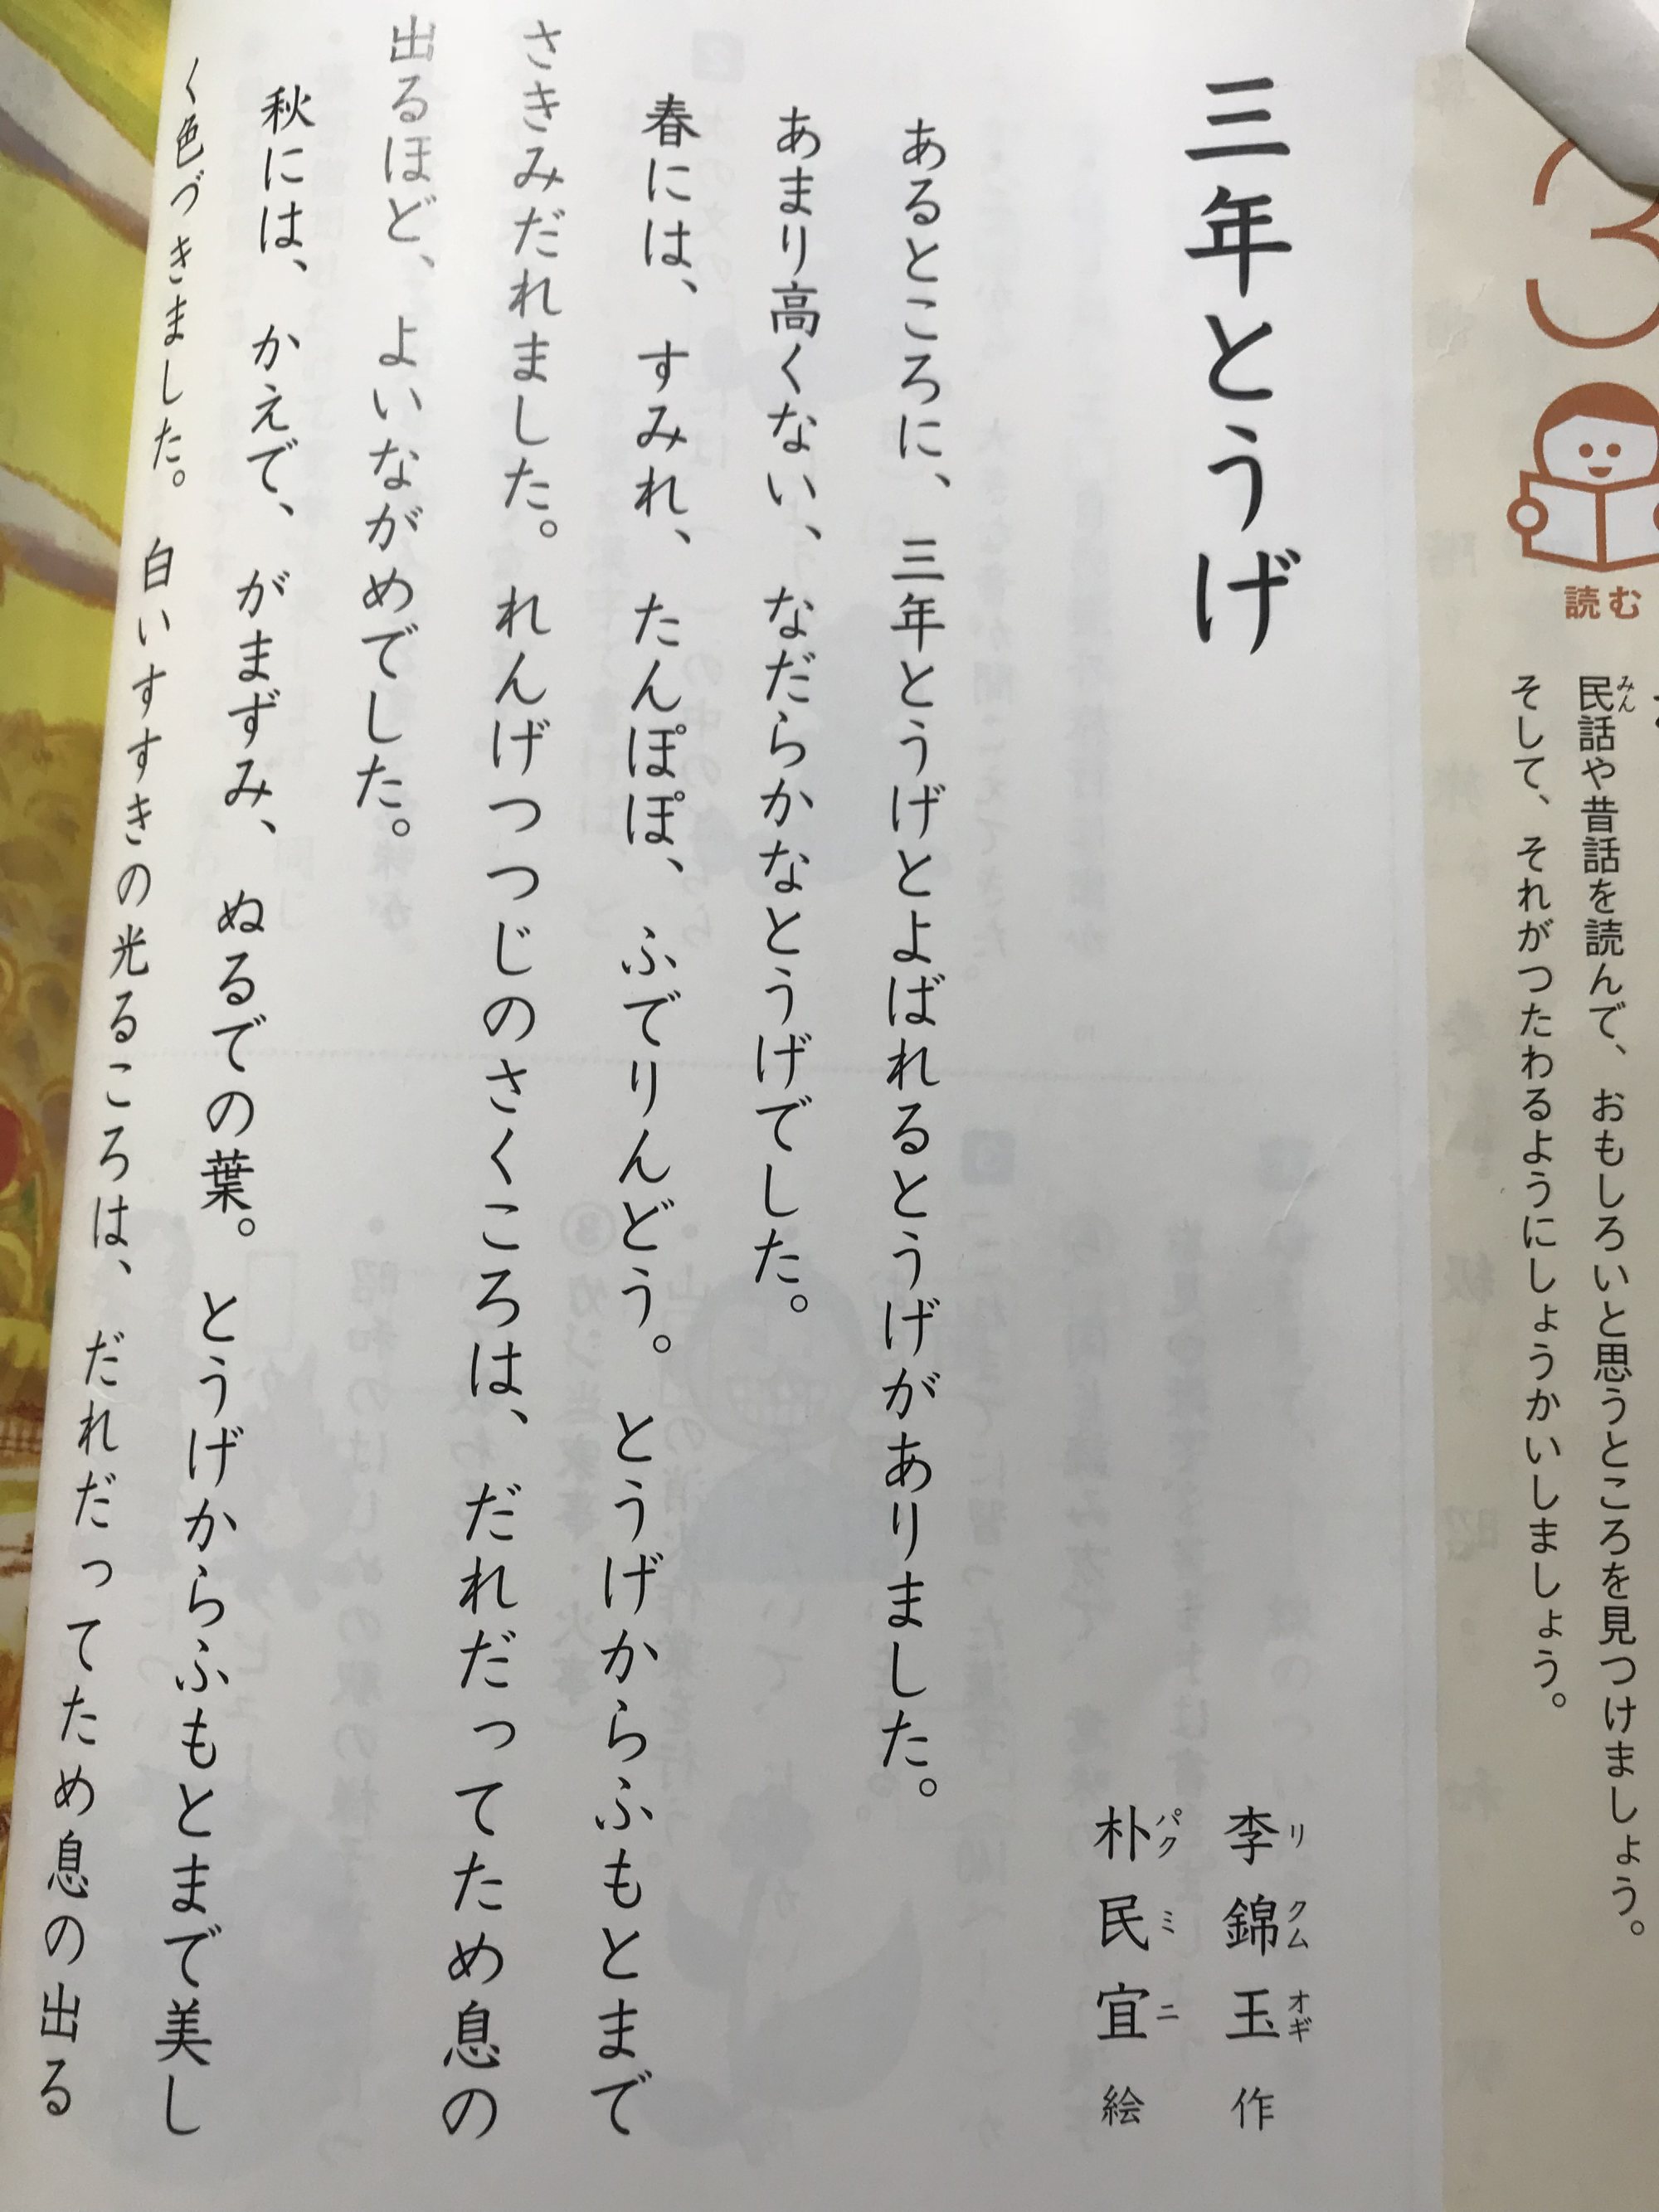 3
読む
民話や昔話を読んで、おもしろいと思うところを見つけましょう。
そして、それがつたわるようにしょうかいしましょう。
三年とうげ
李錦玉 作
リ クム オギ
朴民宜 絵
パク ミ ニ
あるところに、三年とうげとよばれるとうげがありました。
あまり高くない、なだらかなとうげでした。
春には、すみれ、たんぽぽ、ふでりんどう。とうげからふもとまで
さきみだれました。れんげつつじのさくころは、だれだってため息の
出るほど、よいながめでした。
秋には、かえで、がまずみ、ぬるでの葉。とうげからふもとまで美し
く色づきました。白いすすきの光るころは、だれだってため息の出る